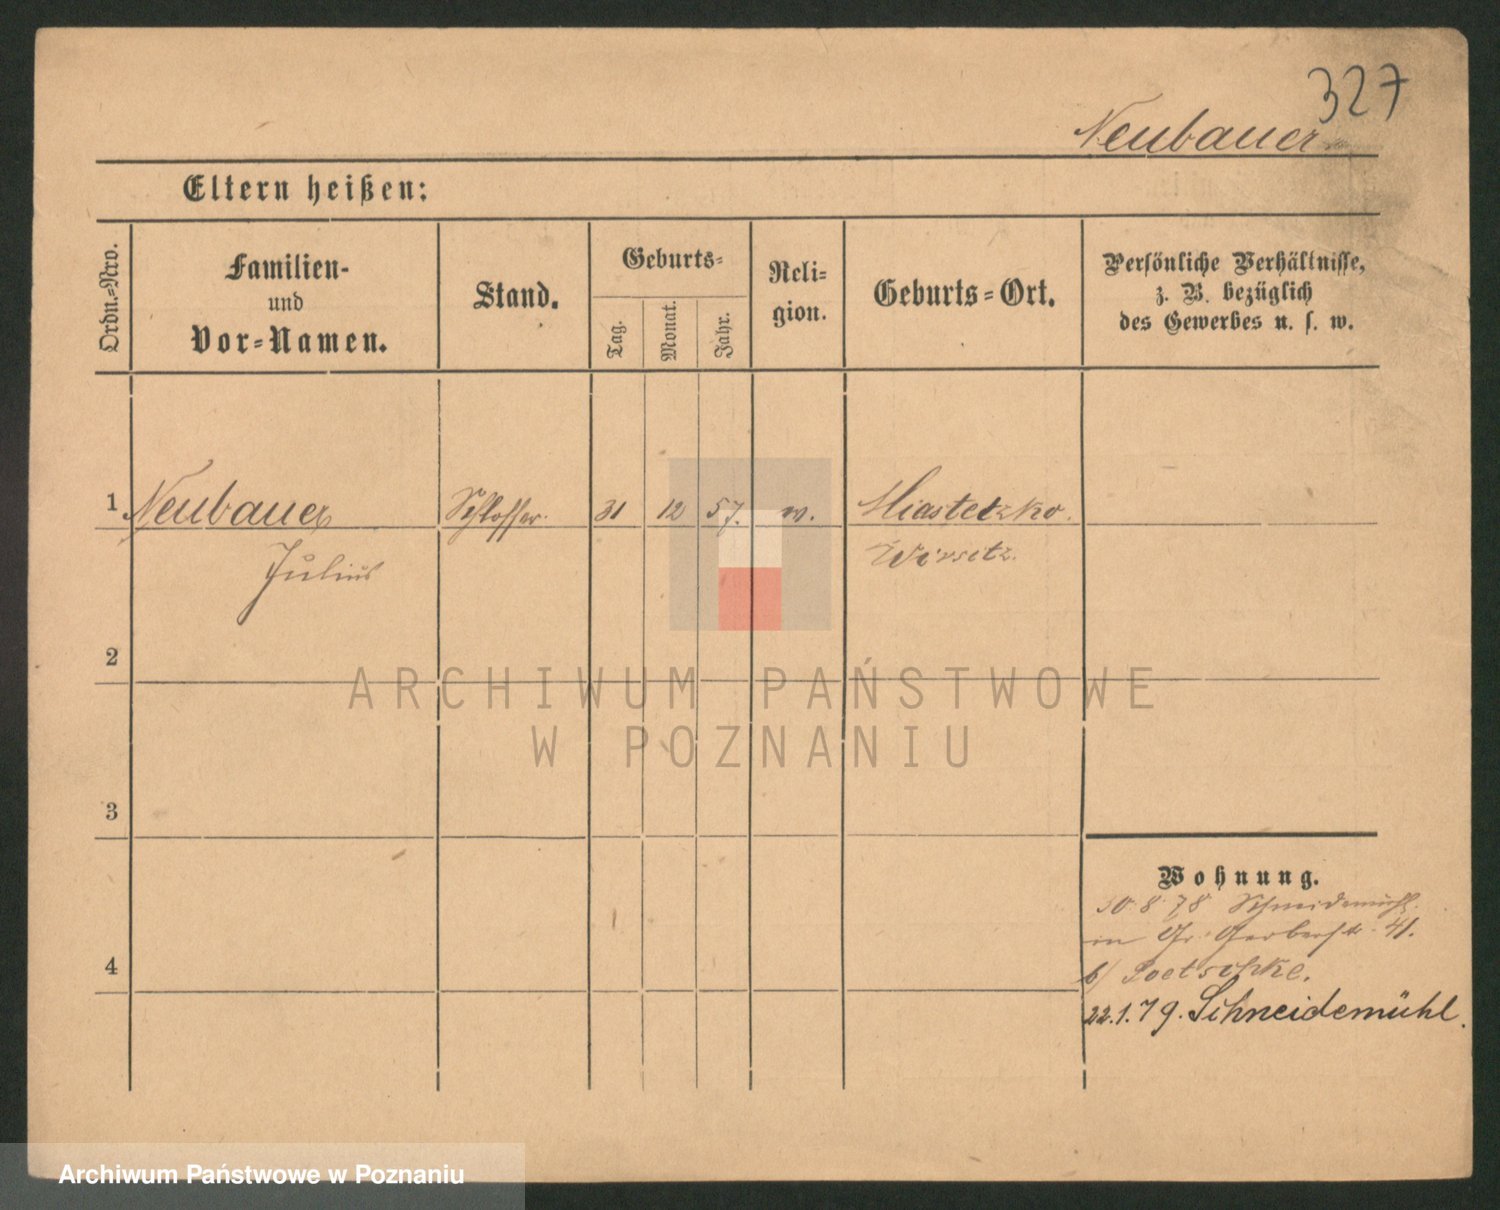 327
Neubauer
Eltern heißen:
Ordn.-Nro.
Familien-
und
Vor-Namen.
Stand.
Geburts-
Tag.
Monat.
Jahr.
Reli-
gion.
Geburts-Ort.
Persönliche Verhältnisse,
z. B. bezüglich
des Gewerbes u. s. w.
1 Neubauer Schlosser. 31 12 57. Miastetzko.
Julius Wirsitz.
2
3
4
Wohnung.
30. 8. 78 Schneidemühl.
in Gr. Gerberstr. 41.
b/
22.1.79. Schneidemühl.
ARCHIWUM PAŃSTWOWE
W POZNANIU
Archiwum Państwowe w Poznaniu